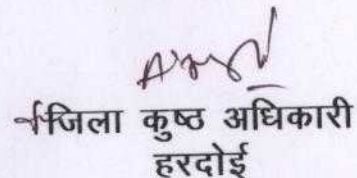 जिला कुष्ठ अधिकारी
हरदोई